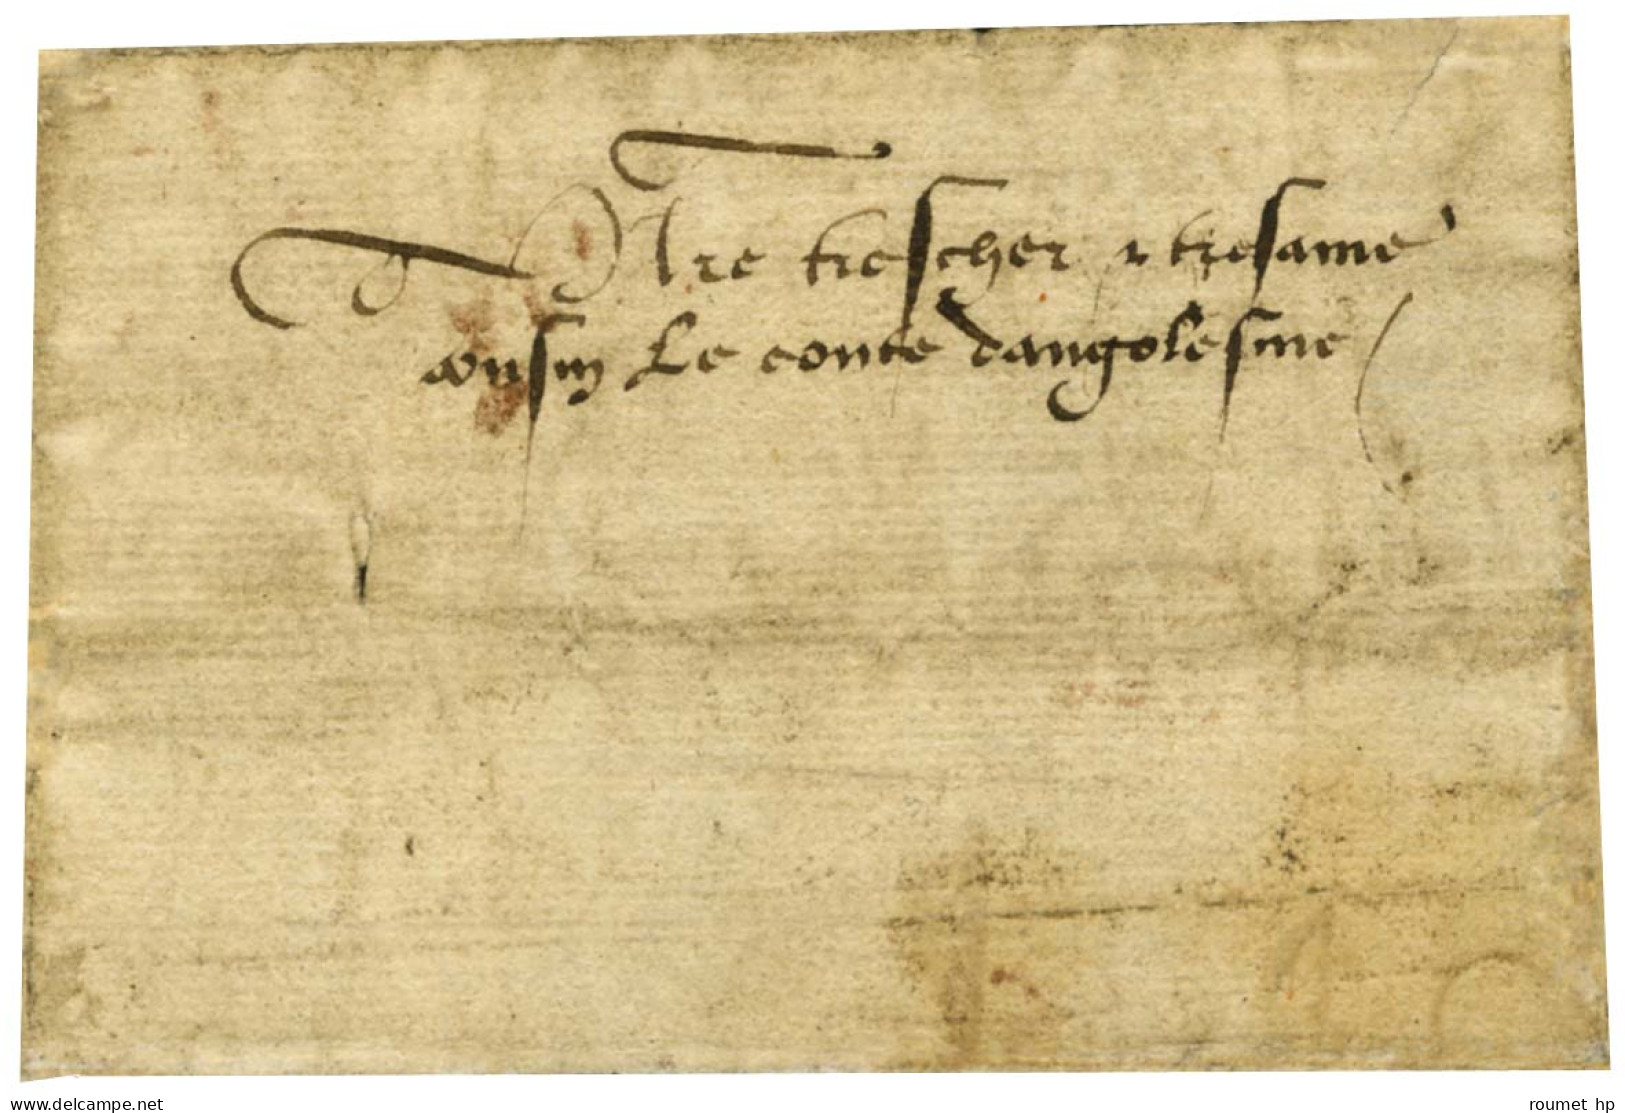 A nre trescher & tresame
cousin Le conte dangolesme
www.delcampe.net
roumet hp